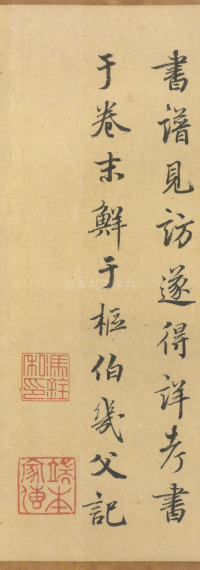 書譜見訪遂得詳考書
于卷末鮮于樞伯幾父記